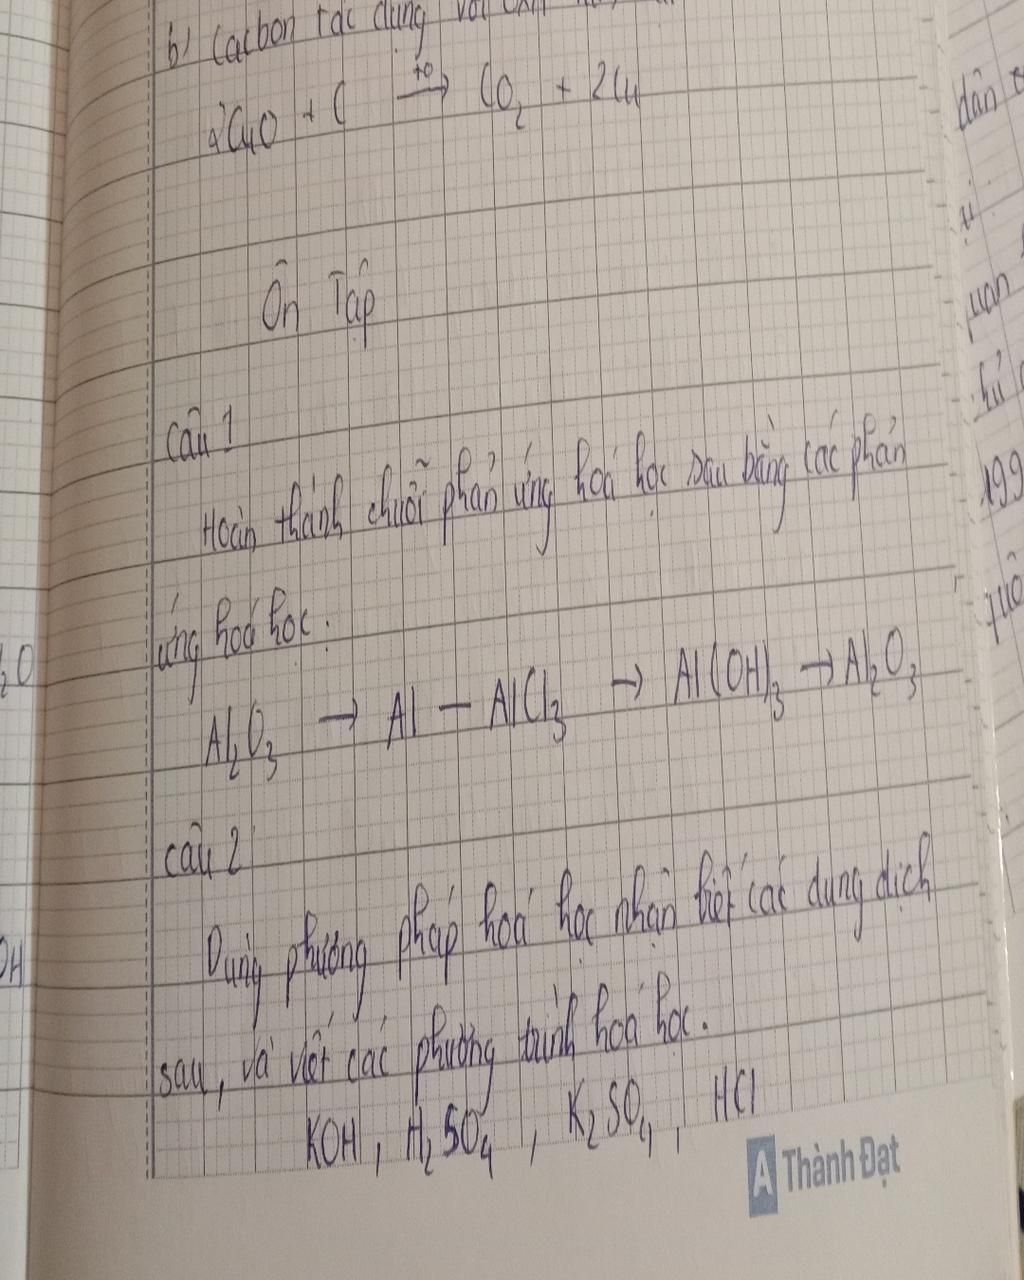 b) Cacbon tác dụng với
2CuO + C t° → CO₂ + 2Cu
Ôn Tập
Câu 1
Hoàn thành chuỗi phản ứng hoá học sau bằng các phản
ứng hoá học:
Al₂O₃ → Al — AlCl₃ → Al(OH)₃ → Al₂O₃
Câu 2
Dùng phương pháp hoá học nhận biết các dung dịch
sau, và viết các phương trình hoá học.
KOH, H₂SO₄, K₂SO₄, HCl
A Thành Đạt